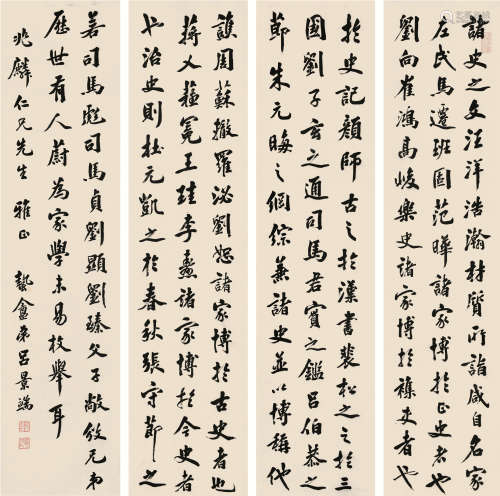 諸史之文汪洋浩瀚材質所詣咸自名家
左氏馬遷班固范曄諸家博於正史者也
劉向崔鴻高峻樂史諸家博於襍史者也
譙周蘇轍羅泌劉恕諸家博於古史者也
蔣乂蘇冕王珪李燾諸家博於今史者
也治史則杜元凱之於春秋張守節之
於史記顏師古之於漢書裴松之之於三
國劉子玄之通司馬君實之鑑呂伯恭之
節朱元晦之綱綜兼諸史並以博稱他
若司馬彪司馬貞劉顯劉臻父子敞攽兄弟
歷世有人蔚為家學未易枚舉耳
兆麟仁兄先生雅正 蟄盦弟呂景端